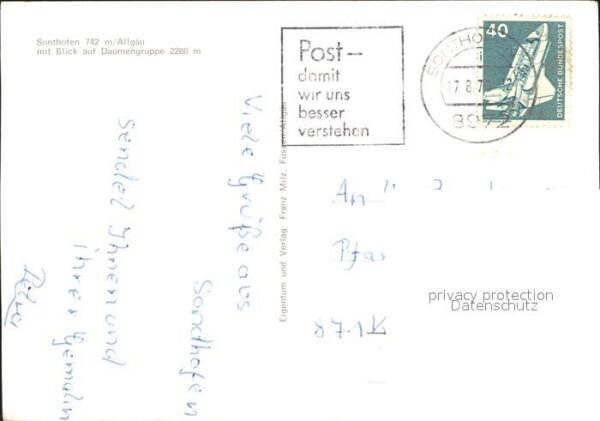 Sonthofen 742 m/Allgäu
mit Blick auf Daumengruppe 2280 m
Post-
damit
wir uns
besser
verstehen
SONTHO
17.8.7
8972
40
DEUTSCHE BUNDESPOST
Eigentum und Verlag: Franz Milz, Füssen/Allgäu
Viele Grüße aus
Sonthofen
sendet Ihnen und
ihrer Gemalin
Petra
An
Pfar
871 K
privacy protection
Datenschutz